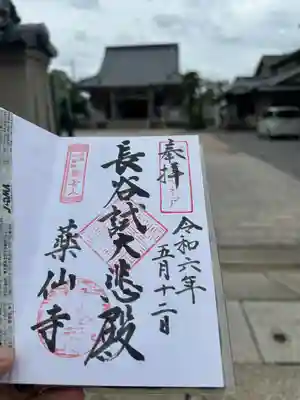 奉拝
令和六年
五月十二日
長谷試大悲殿
薬仙寺